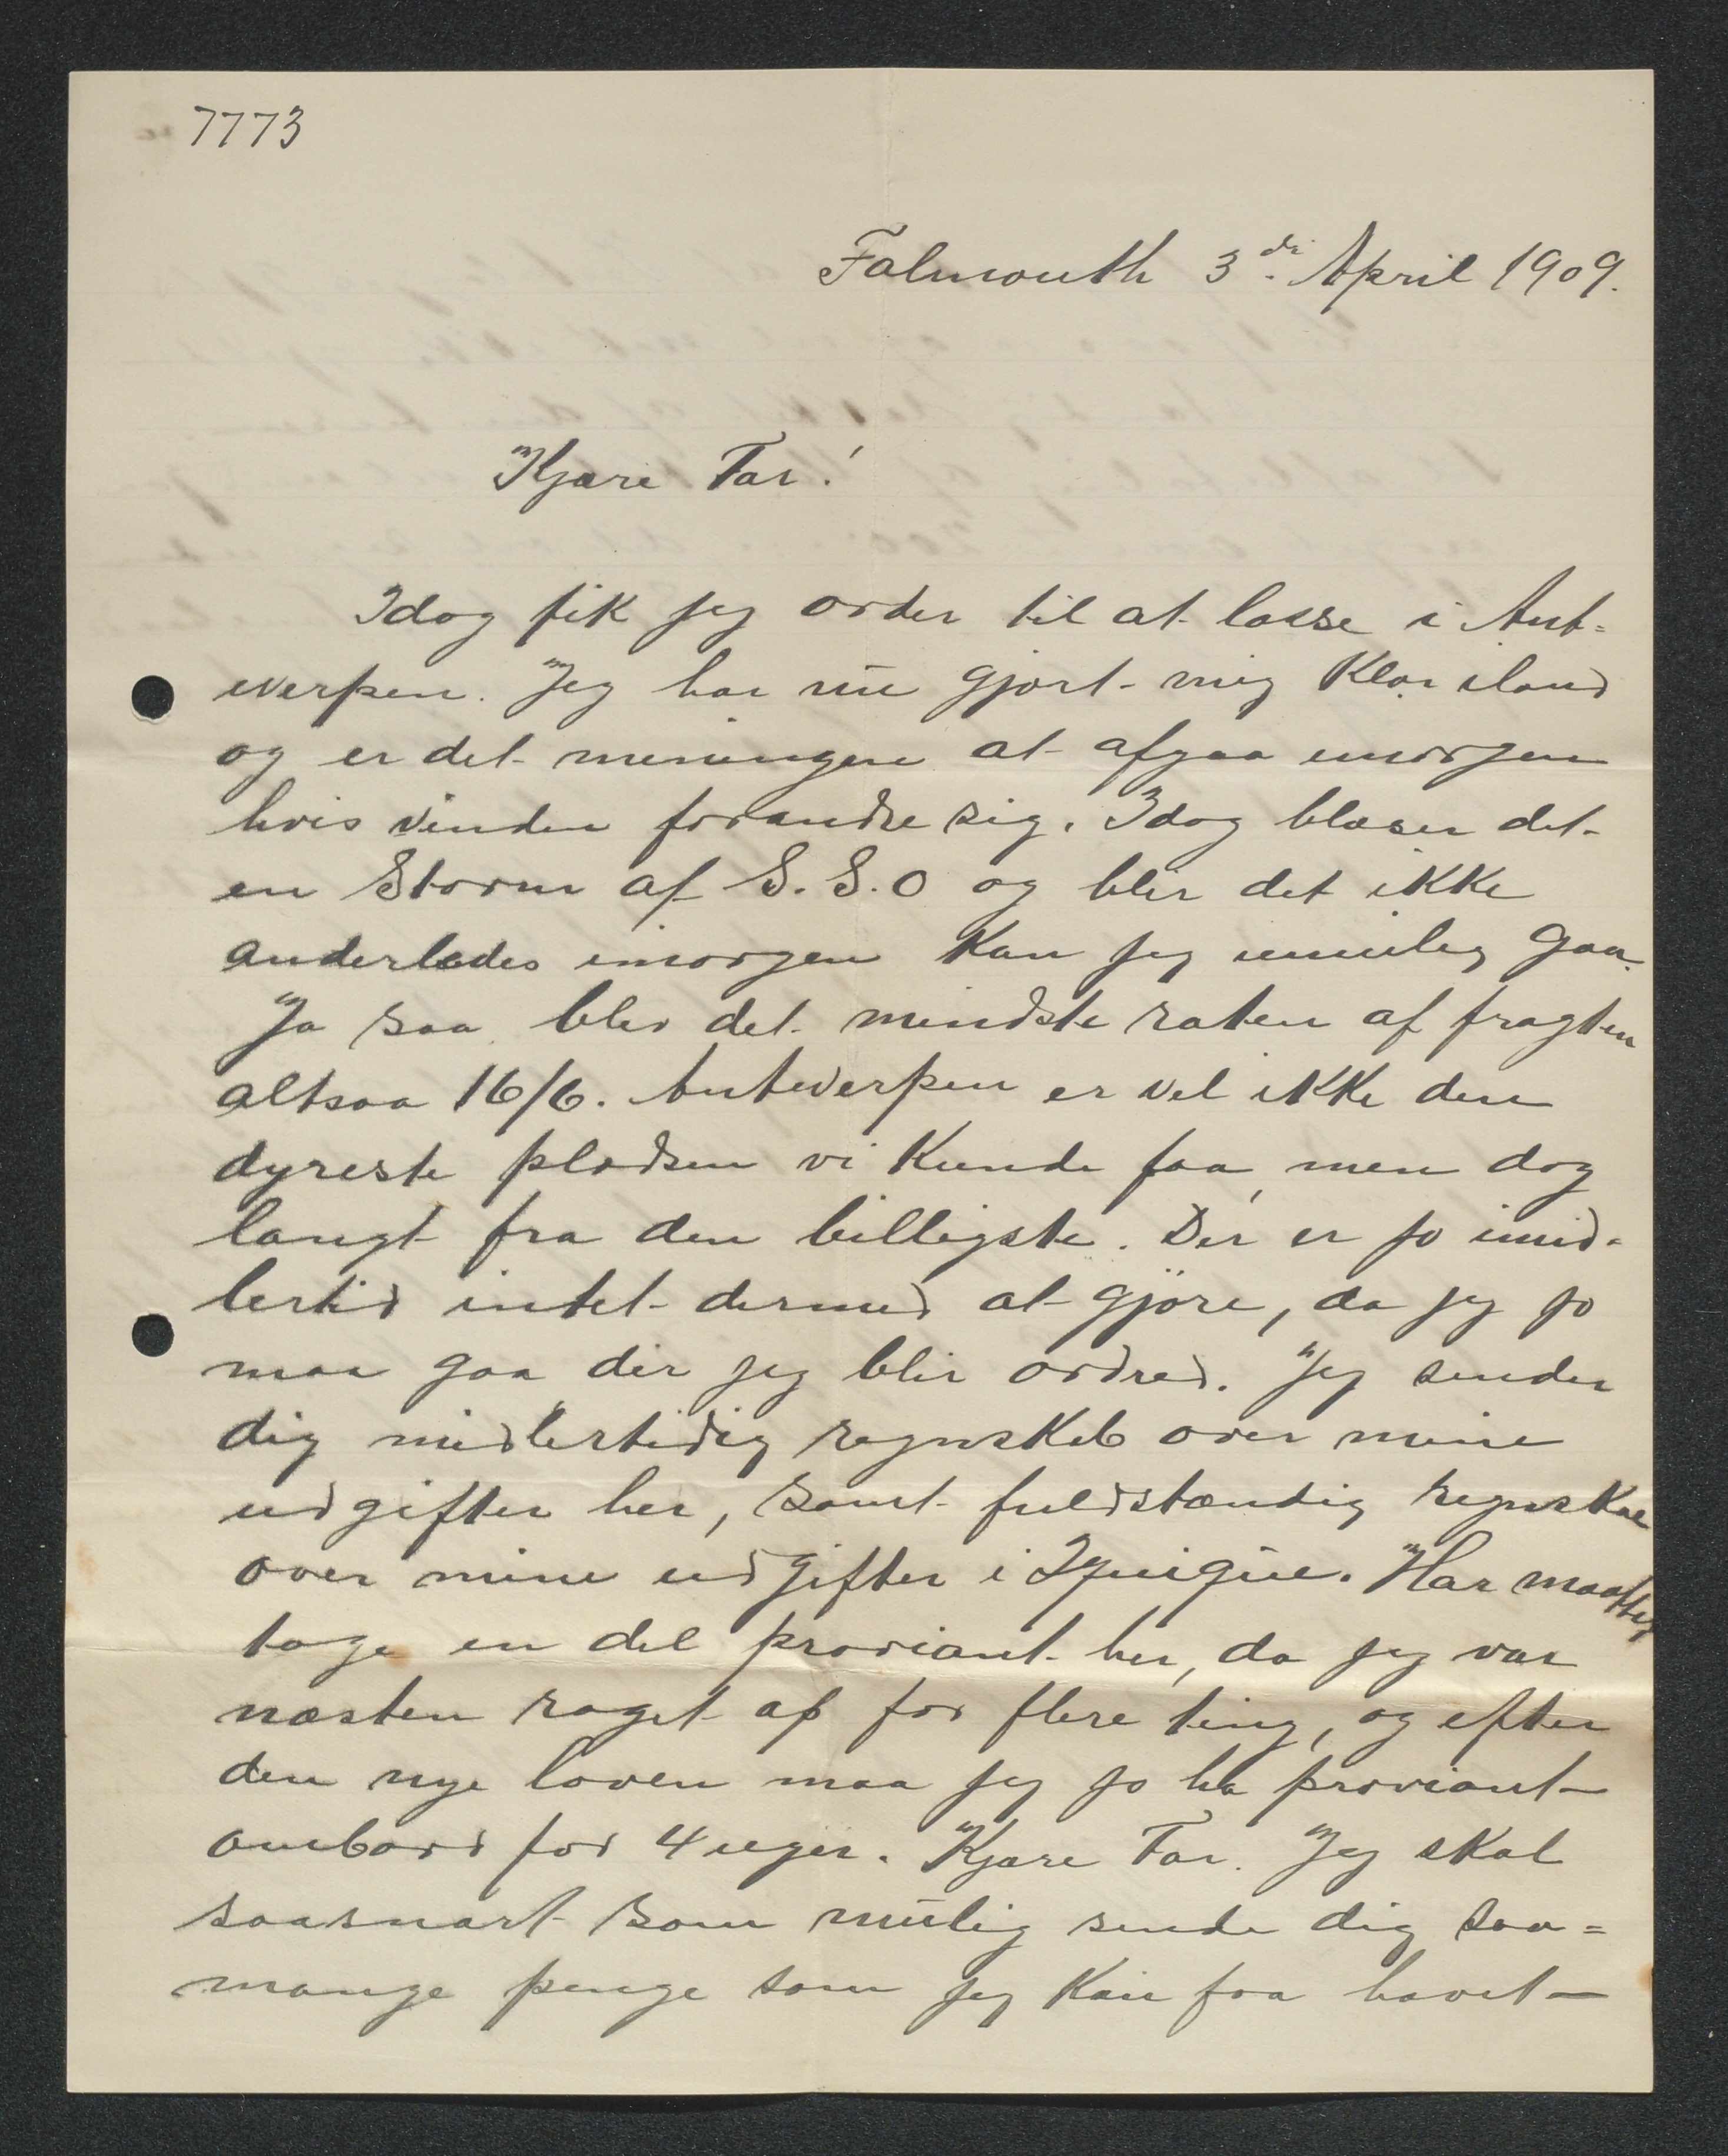 7773
Falmouth 3di April 1909.
Kjære Far!
Idag fik jeg order til at losse i Ant=
werpen. Jeg har nu gjort mig klar iland
og er det meningen at afgaa imorgen
hvis vinden forandre sig. Idag blæser det
en Storm af S. S. O og blir det ikke
anderledes imorgen kan jeg umulig gaa.
Ja saa blev det mindste raten af fragten
altsaa 16/6. Antwerpen er vel ikke den
dyreste pladsen vi kunde faa, men dog
langt fra den billigste. Der er jo imid-
lertid intet dermed at gjöre, da jeg jo
maa gaa der jeg blir ordred. Jeg sender
dig midlertidig regnskab over mine
udgifter her, samt fuldstændig regnskab
over mine udgifter i Iquique. Har maattet
tage en del proviant her, da jeg var
næsten raget af for flere ting, og efter
den nye loven maa jeg jo ha proviant
ombord for 4 uger. Kjære Far. Jeg skal
saasnart som mulig sende dig saa=
mange penge som jeg kan faa havet